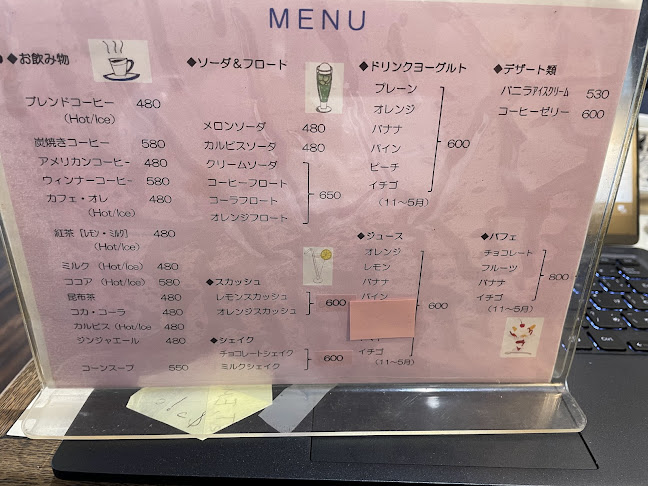 MENU
◆お飲み物
ブレンドコーヒー 480
(Hot/Ice)
炭焼きコーヒー 580
アメリカンコーヒー 480
ウィンナーコーヒー 580
カフェ・オレ 480
(Hot/Ice)
紅茶［レモン・ミルク］ 480
(Hot/Ice)
ミルク (Hot/Ice) 480
ココア (Hot/Ice) 580
昆布茶 480
コカ・コーラ 480
カルピス (Hot/Ice 480
ジンジャエール 480
コーンスープ 550
◆ソーダ＆フロート
メロンソーダ 480
カルピスソーダ 480
クリームソーダ
コーヒーフロート
コーラフロート
オレンジフロート
650
◆スカッシュ
レモンスカッシュ
オレンジスカッシュ
600
◆シェイク
チョコレートシェイク
ミルクシェイク
600
◆ドリンクヨーグルト
プレーン
オレンジ
バナナ
パイン
ピーチ
イチゴ
(11～5月)
600
◆ジュース
オレンジ
レモン
バナナ
パイン
イチゴ
(11～5月)
600
◆デザート類
バニラアイスクリーム 530
コーヒーゼリー 600
◆パフェ
チョコレート
フルーツ
バナナ
イチゴ
(11～5月)
800